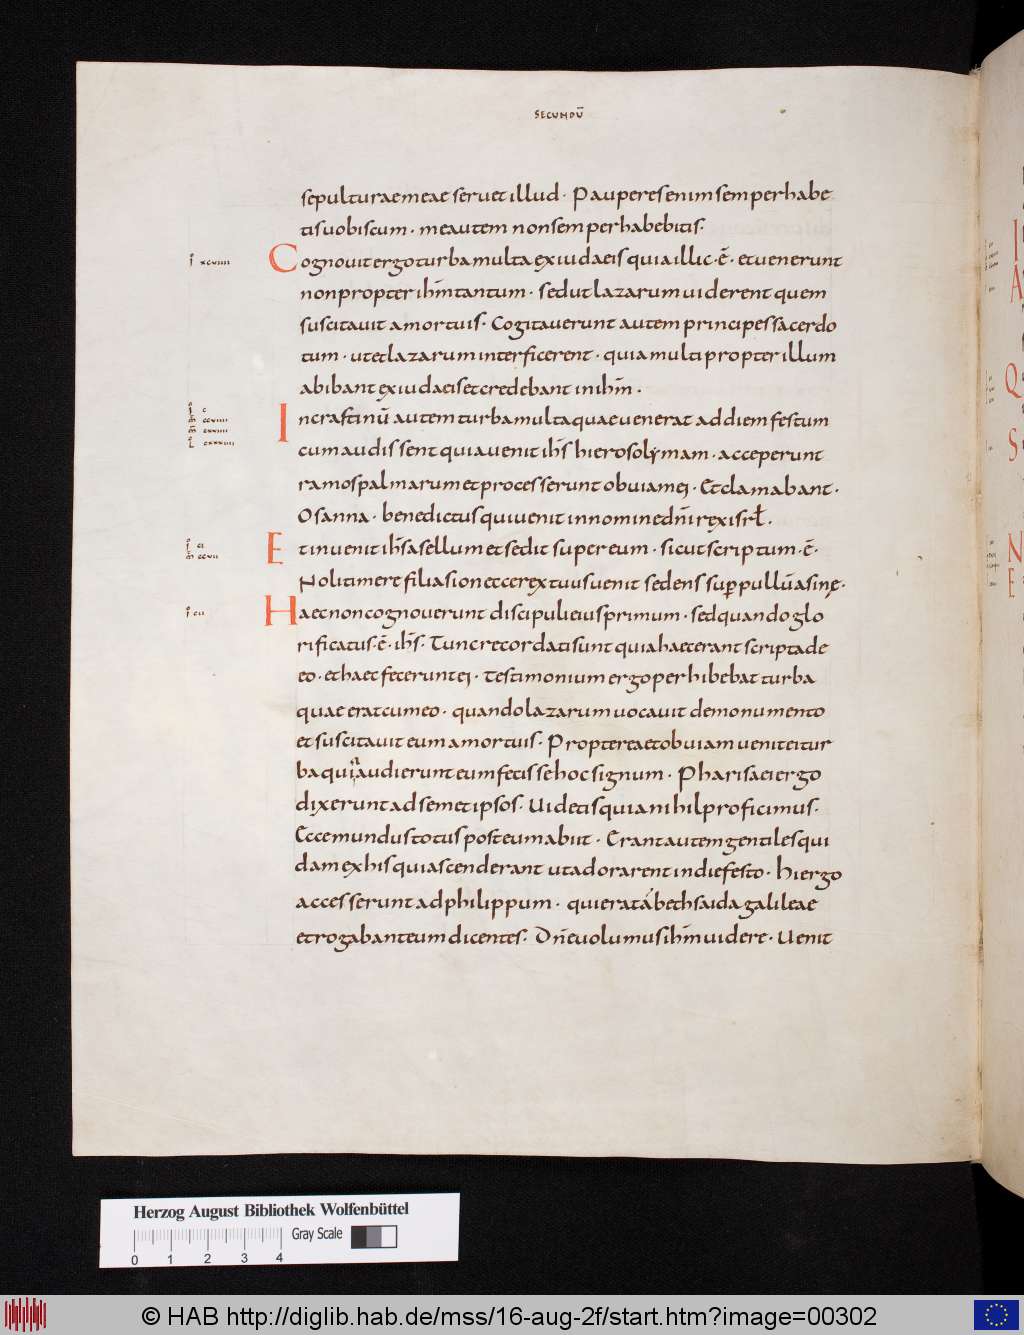 SECUNDŪ
sepulturae meae seruet illud · Pauperes enim semper habe
tis uobiscum · me autem non semper habebitis·
Cognouit ergo turba multa ex iudaeis quia illic · ē · et uenerunt
non propter ihm̄ tantum · sed ut lazarum uiderent quem
suscitauit a mortuis · Cogitauerunt autem principes sacerdo
tum · ut et lazarum interficerent · quia multi propter illum
abibant ex iudaeis et credebant in ihm̄ ·
In crastinū autem turba multa quae uenerat ad diem festum
cum audissent quia uenit ihs̄ hierosolymam · acceperunt
ramos palmarum et processerunt obuiam ei · Et clamabant ·
Osanna · benedictus qui uenit in nomine dn̄i rex isrł ·
Et inuenit ihs̄ asellum et sedit super eum · sicut scriptum · ē ·
Noli timere filia sion ecce rex tuus uenit sedens sup pullū asinę ·
Haec non cognouerunt discipuli eius primum · sed quando glo
rificatus · ē · ihs̄ · Tunc recordati sunt quia haec erant scripta de
eo · et haec fecerunt ei · Testimonium ergo perhibebat turba
quae erat cum eo · quando lazarum uocauit de monumento
et suscitauit eum a mortuis · Propterea et obuiam uenit ei tur
ba quia audierunt eum fecisse hoc signum · Pharisaei ergo
dixerunt ad semet ipsos · Uidetis quia nihil proficimus ·
Ecce mundus totus post eum abiit · Erant autem gentiles qui
dam ex his qui ascenderant ut adorarent in die festo · hi ergo
accesserunt ad philippum · qui erat a bethsaida galileae
et rogabant eum dicentes · Dn̄e uolumus ihm̄ uidere · Uenit
I xcuiiii
I c
M ccuiiii
L cxxxuiiii
I ci
M ccuii
I cii
I
A
Q
S
N
E
Herzog August Bibliothek Wolfenbüttel
Gray Scale
0 1 2 3 4
© HAB http://diglib.hab.de/mss/16-aug-2f/start.htm?image=00302